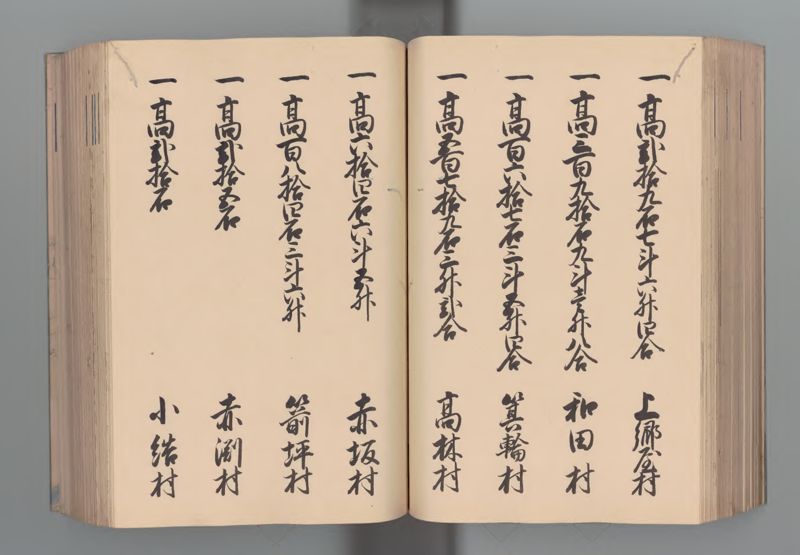 一 高弐拾九石七斗六升四合 上郷屋村
一 高三百九拾石九斗壱升八合 和田村
一 高百六拾七石三斗五升四合 箕輪村
一 高五百七拾九石三升弐合 高林村
一 高六拾四石六斗五升 赤坂村
一 高百八拾四石三斗六升 箭坪村
一 高弐拾五石 赤渕村
一 高弐拾石 小結村